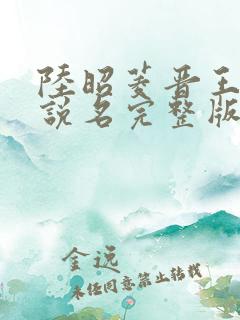 陸昭菱晋王
説名完整版
金远
未经同意禁止转载